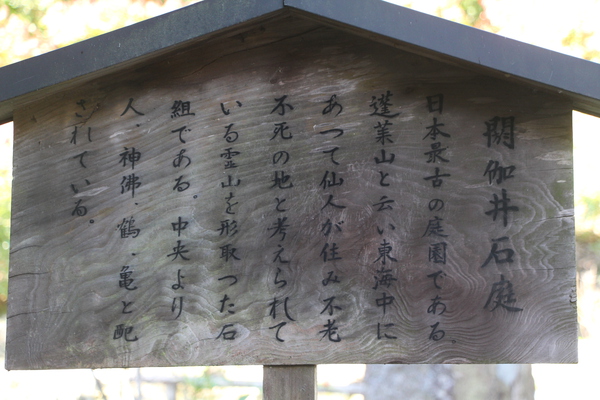 閼伽井石庭
日本最古の庭園である。
蓬莱山と云い東海中に
あつて仙人が住み不老
不死の地と考えられて
いる霊山を形取つた石
組である。中央より
人、神佛、鶴、亀と配
されている。